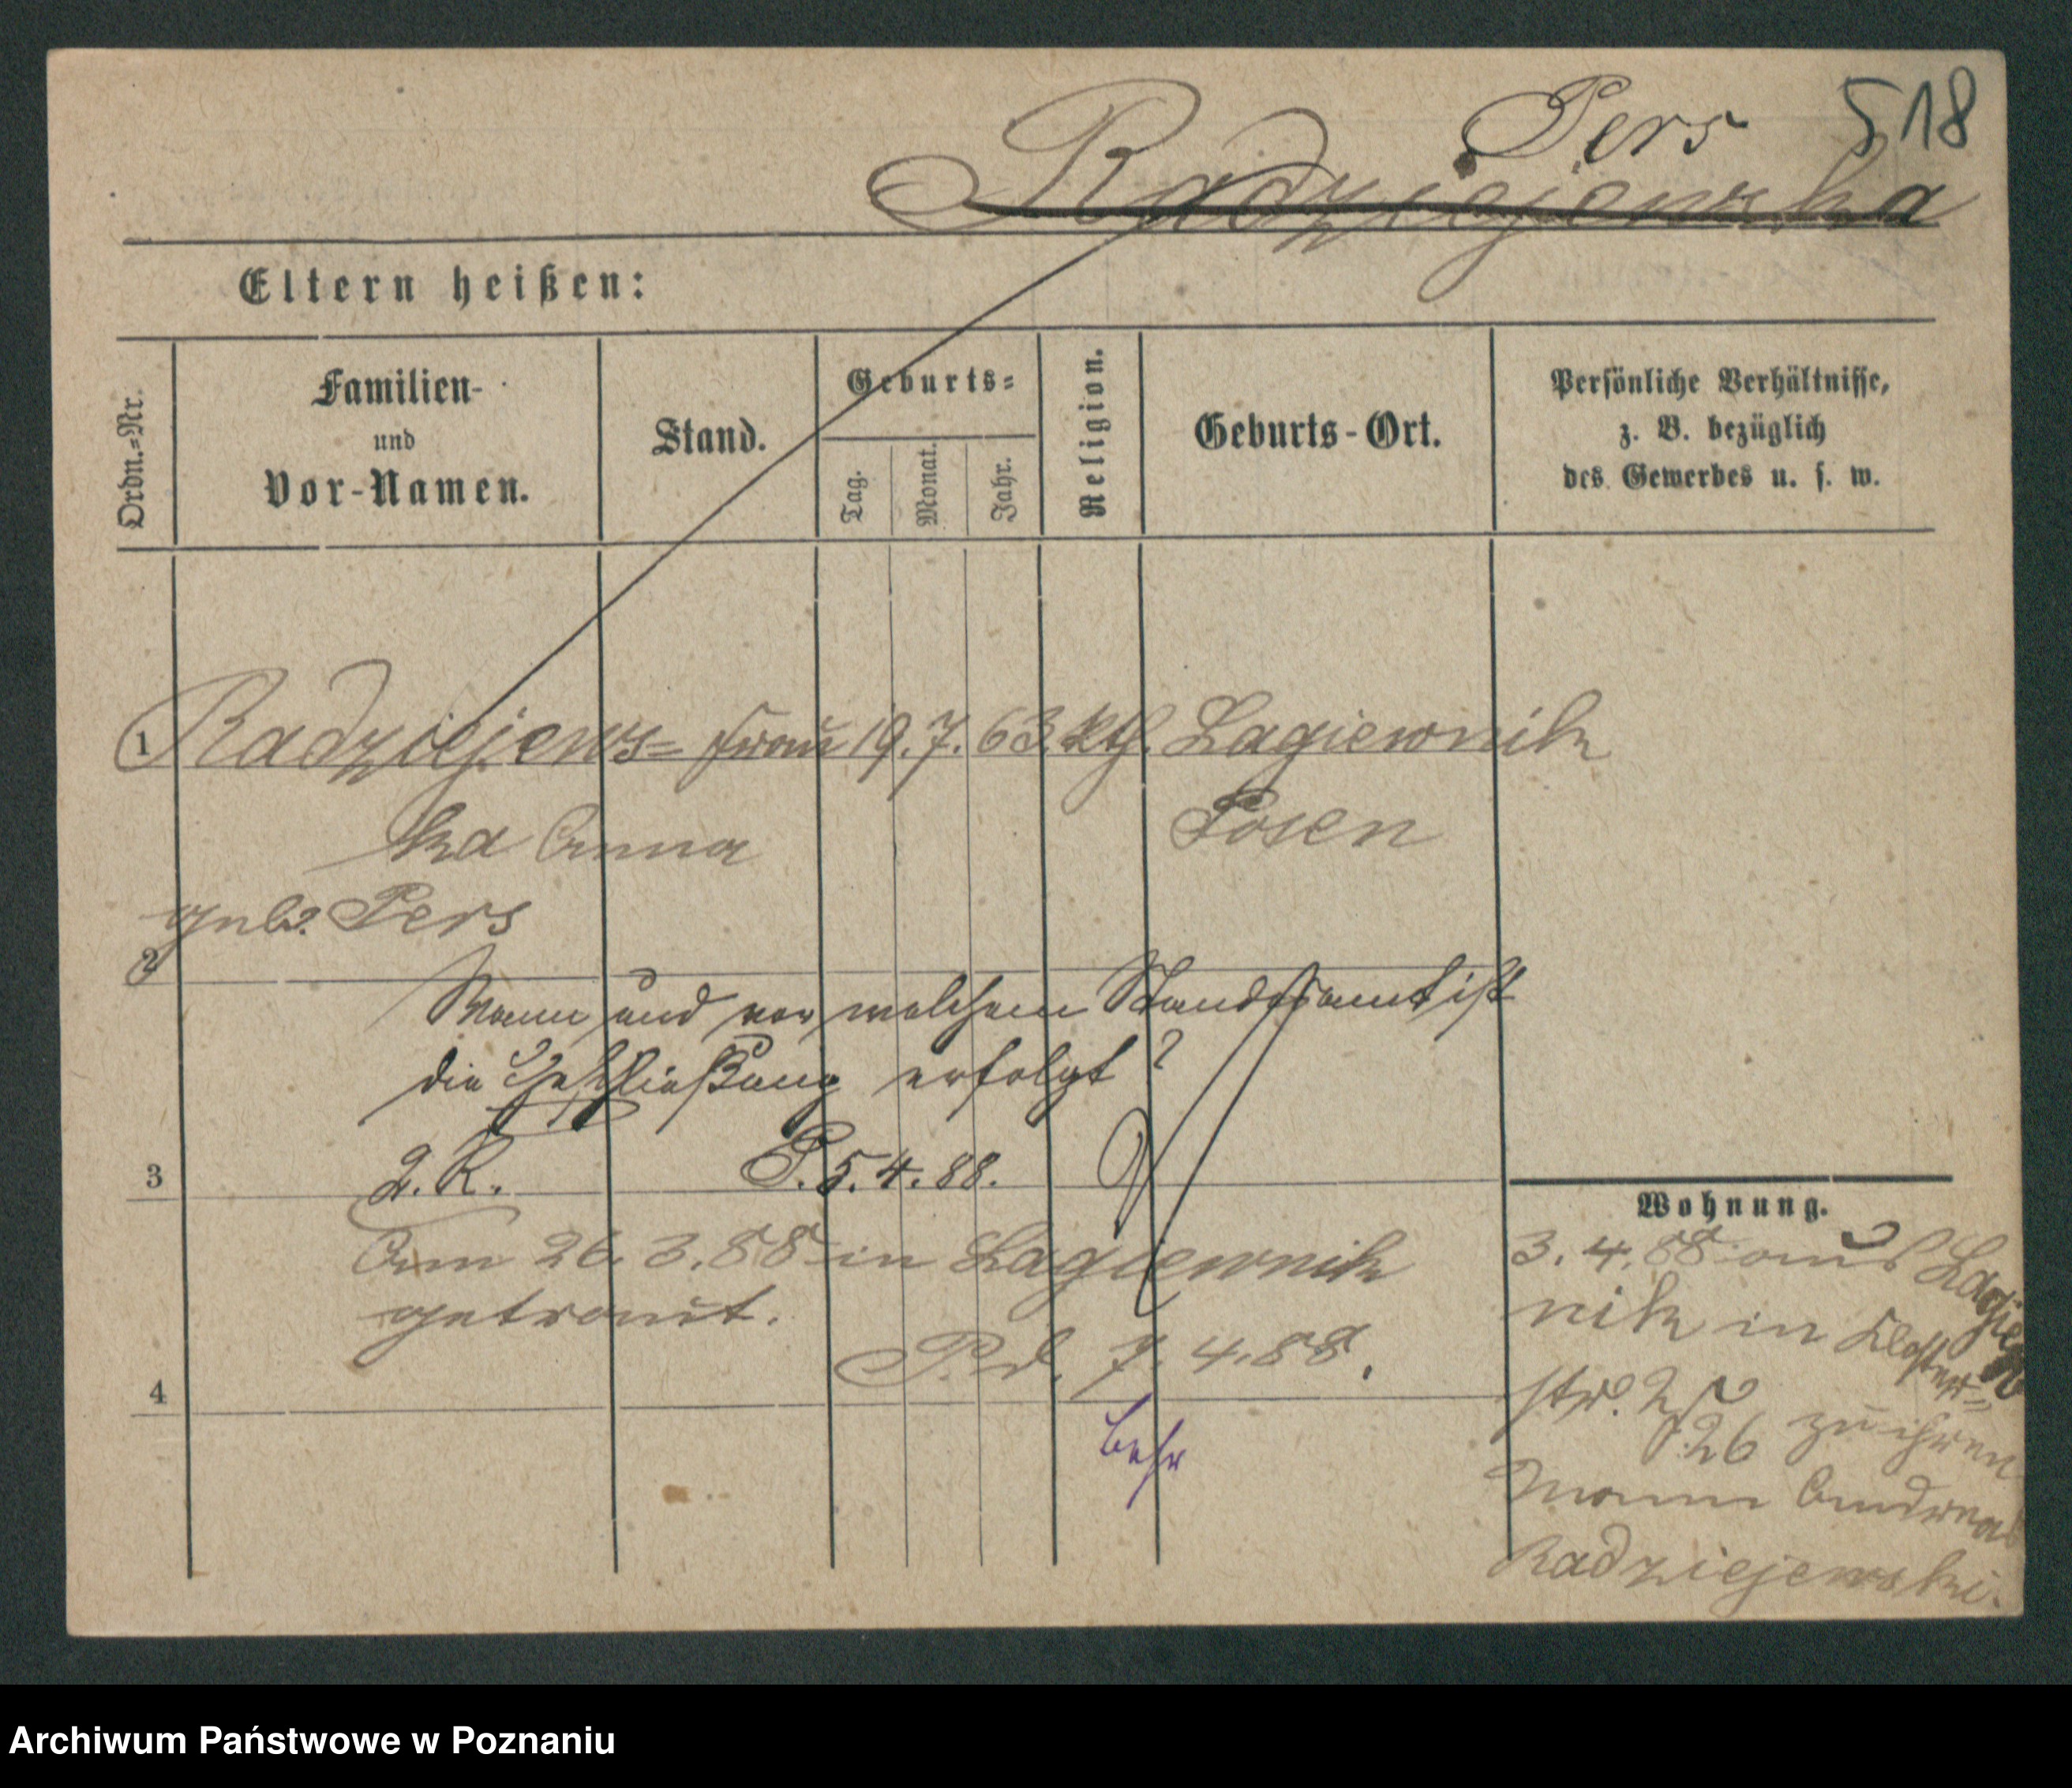 Pers 518
Radziejewska
Eltern heißen:
Ordn.=Nr.
Familien-
und
Vor-Namen.
Stand.
Geburts=
Tag.
Monat.
Jahr.
Religion.
Geburts-Ort.
Persönliche Verhältnisse,
z. B. bezüglich
des Gewerbes u. s. w.
1 Radziejews= Frau 19. 7. 63. kth. Lagiewnik
ka Anna Posen
geb. Pers
2
Wann und vor welchem Standesamt ist
die Eheschließung erfolgt?
3 2. R. P. 5. 4. 88.
Am 26. 3. 88 in Lagiewnik
getraut.
P. d. 7. 4. 88.
4
Wohnung.
3. 4. 88 aus Lagiew
nik in Kloster=
str. 25
26 zu ihren
Mann Andreas
Radziejewski.
Archiwum Państwowe w Poznaniu